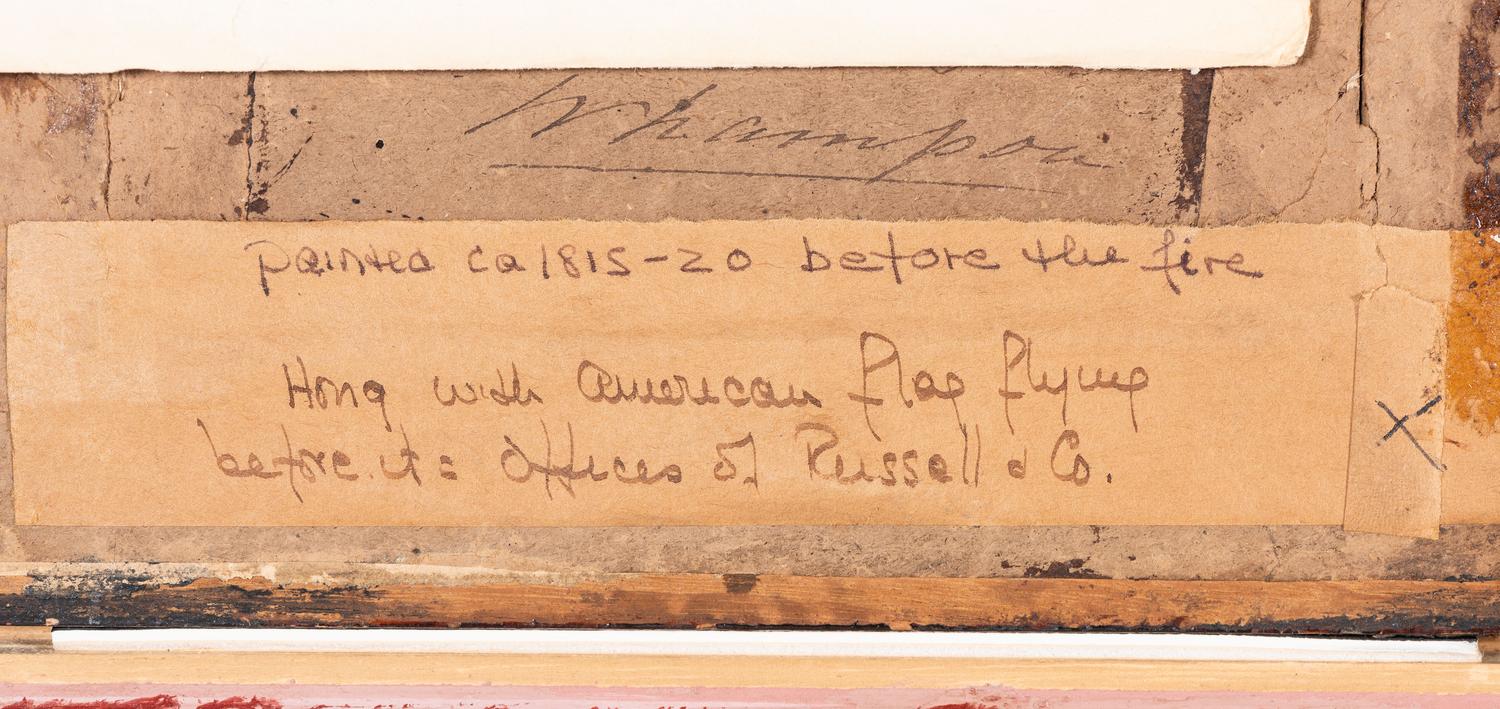 Whampoa
painted ca 1815-20 before the fire
Hong with American flag flying
before it = Offices of Russell & Co.
X